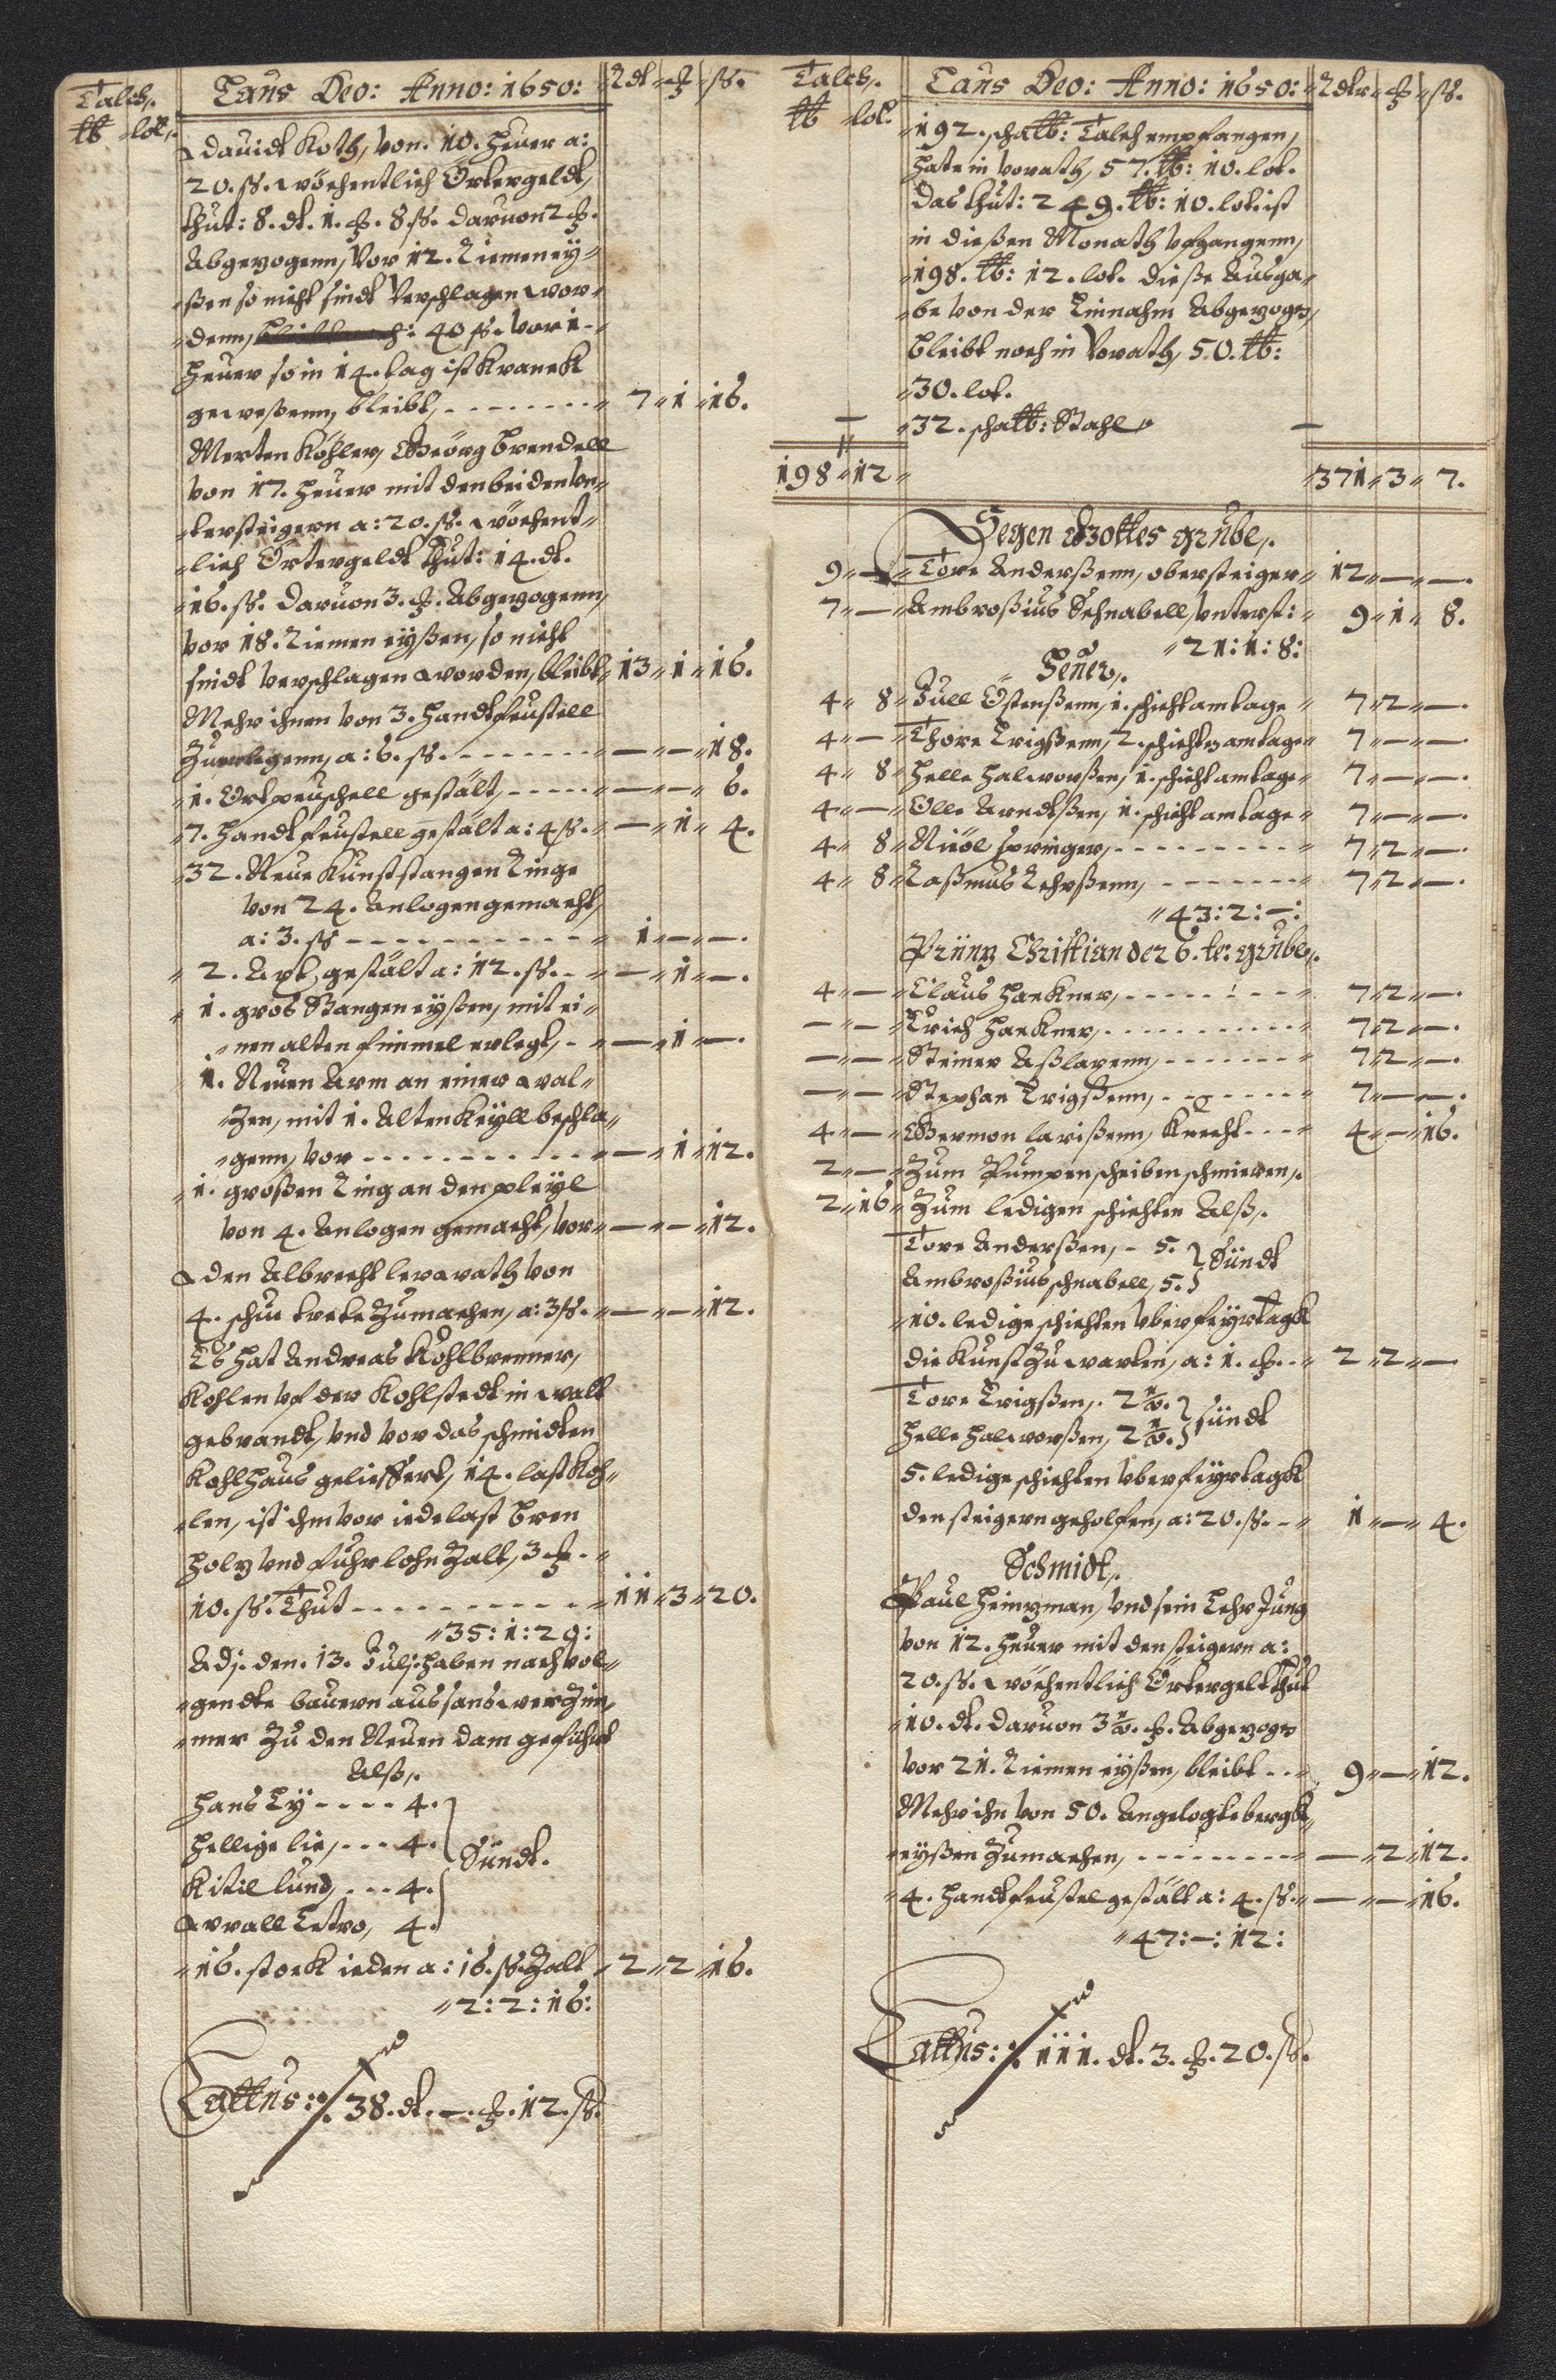 Talch,.
℔ lot,.
Laus Deo: Anno: 1650:
Rdt ß.
Dauidt Koth, von. 10. Heuer a:
20. ß. wöchentlich Örtergeldt,
thut: 8. dt. 1. 8 ß. daruon 2
Abgezogenn, Vor 12. Riemen ey-
ßen so nicht sindt Verschlagen wor-
denn, 40 ß. vor 1
Heuer so in 14. tag ist Kranck
geweßenn, bleibt, 7 1 16.
Merten Köhler, Geörg Brendell
von 17. Heuer mit den beiden Vn-
tersteigern a: 20. ß. wöchent-
lich Örtergeldt thut: 14. dt.
16. ß. daruon 3. Abgezogenn,
vor 18. Riemen eyßen, so nicht
sindt verschlagen worden, bleibt 13 1 16.
Mehr ihnen von 3. Handtfeustell
Zuerlegenn, a: 6. ß. — — 18.
1. Ortpeuschell gestält, — — 6.
7. Handtfeustell gestält a: 4 ß. — 1 4.
32. Neue Kunststangen Ringe
von 24. Anlogen gemacht,
a: 3. ß 1 — —.
2. Axt, gestält a: 12. ß. — 1 —.
1. gros Stangen eyßen, mit ei-
nen alten fimmel erlegt, — 1 —.
1. Neuen Arm an einer wal-
zen, mit 1. Alten Keyll beschla-
genn, vor — 1 12.
1. großen Ring an den pleyl
von 4. Anlogen gemacht, vor — — 12.
den Albrecht von
4. schu Zumachen, a: 3 ß. — — 12.
Es hat Andreas Kohlbrenner,
Kohlen vf der Kohlstedt in walt
gebrandt, vnd vor das schmidten
Kohlhaus gelieffert, 14. last Koh-
len, ist ihm vor iede last Bren
holz vnd fuhrlohn Zalt, 3
10. ß. Thut 11 3 20.
35: 1: 20:
Adj. den. 13. Julj: haben nach vol-
gendte bauern aus sansewer Zim-
mer Zu den Neuen dam geführt
Alß,.
Hans Ly 4.
Hellige lie, 4.
Kitil lund, 4.
4.
Sündt.
16. stock ieden a: 16. ß. Zalt 2 2 16.
2: 2: 16:
Lattus: 38. dt. — 12. ß.
Talch,.
℔ lot.
Laus Deo: Anno: 1650:
Rdtr ß.
192. scha℔: Talch empfangen,
hate in vorath, 57. ℔: 10. lot.
das thut: 249. ℔: 10. lot. ist
in dießen Monath vfgangenn,
198. ℔: 12. lot. dieße Ausga-
be von der Einnahm Abgezogen,
bleibt noch in Vorath, 50. ℔:
30. lot.
— 32. scha℔: Stahl —
198 12 371 3 7.
Segen Gottes grube,.
9 — Tore Anderßenn, obersteiger 12 — —.
7 — Ambroßius Schnabell, Vnterst: 9 1 8.
21: 1: 8:
Heuer,.
4 8 Jull Östenßenn, 1. schicht am tage 7 2 —.
4 — Thore Erigßenn, 2. schichten am tage 7 — —.
4 8 Helle Halworßen, 1. schicht am tage 7 — —.
4 — Olle Arndtßen, 1. schicht am tage 7 — —.
4 8 Niöl springer, 7 2 —.
4 8 Raßmus Rehrßenn, 7 2 —.
43: 2: —:
Printz Christian der 6. te: grube,.
4 — Claus Hackner, 7 2 —.
— — Erich Hackner, 7 2 —.
— — Steiner Aßlaxenn, 7 2 —.
— — Stephan Erigßenn, 7 — —.
4 — Germon larißenn, Knecht 4 — 16.
2 — Zum Pumpenscheiben schmieren,.
2 16 Zum ledigen schichten Alß,.
Tore Anderßen, 5.
Ambroßius schnabell, 5.
Sündt
10. ledige schichten vber feyrtagk
die Kunst Zu warten, a: 1. 2 2 —
Tore Erigßen,. 2½.
Helle Halworßen, 2½.
sündt
5. ledige schichten vber feyrtagk
den steigern geholfen, a: 20. ß. 1 — 4.
Schmidt,.
Paul Heinzman, vnd sein Lehr Jung
von 12. Heuer mit den steigern a:
20. ß. wöchentlich Örtergelt thut
10. dt. daruon 3½. Abgezogen
vor 21. Riemen eyßen, bleibt 9 — 12.
Mehr ihn von 50. Angelogte bergk-
eyßen Zumachen, — 2 12.
4. Handtfeustel gestält a: 4. ß. — — 16.
47: —: 12:
Lattus: 111. dt. 3. 20. ß.